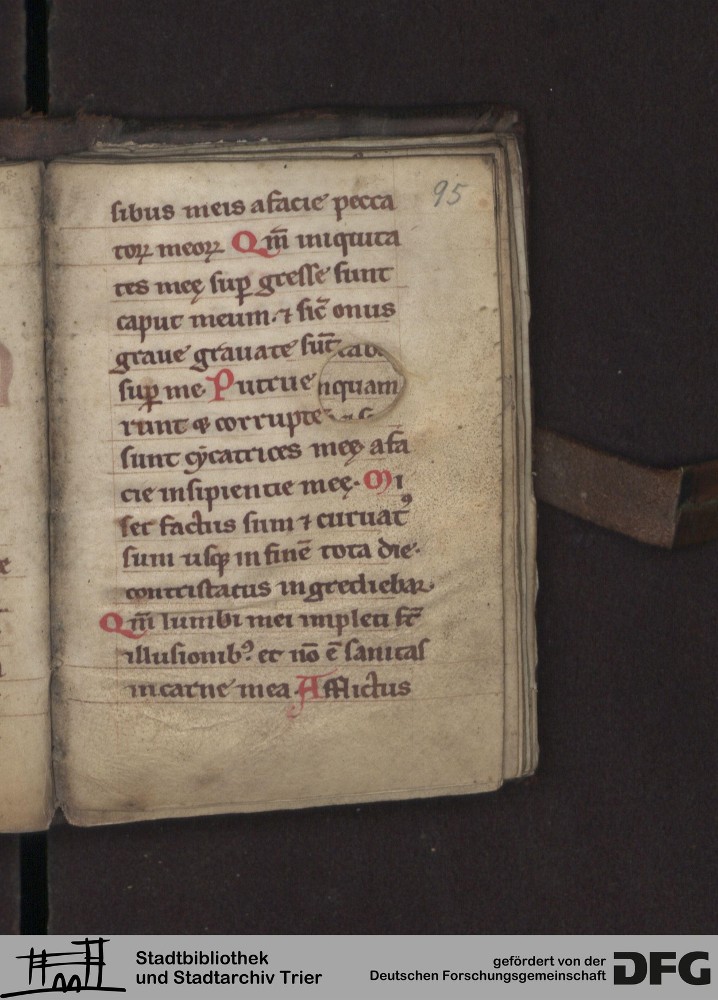 95
sibus meis a facie pecca
toꝝ meoꝝ Qm̄ iniquita
tes meę sup̱ gresse sunt
caput meum. ⁊ sic̄ onus
graue grauate sūt
sup̱ me Putrue
nquam
runt & corrupte
sunt cycatrices meę a fa
cie insipientie meę. Mi
ser factus sum ⁊ curuatꝰ
sum usq; in finē tota die.
contristatus ingrediebar.
Qm̄ lumbi mei impleti st̄
illusionibꝰ. et nō ē sanitas
in carne mea Afflictus
Stadtbibliothek
und Stadtarchiv Trier
gefördert von der
Deutschen Forschungsgemeinschaft
DFG